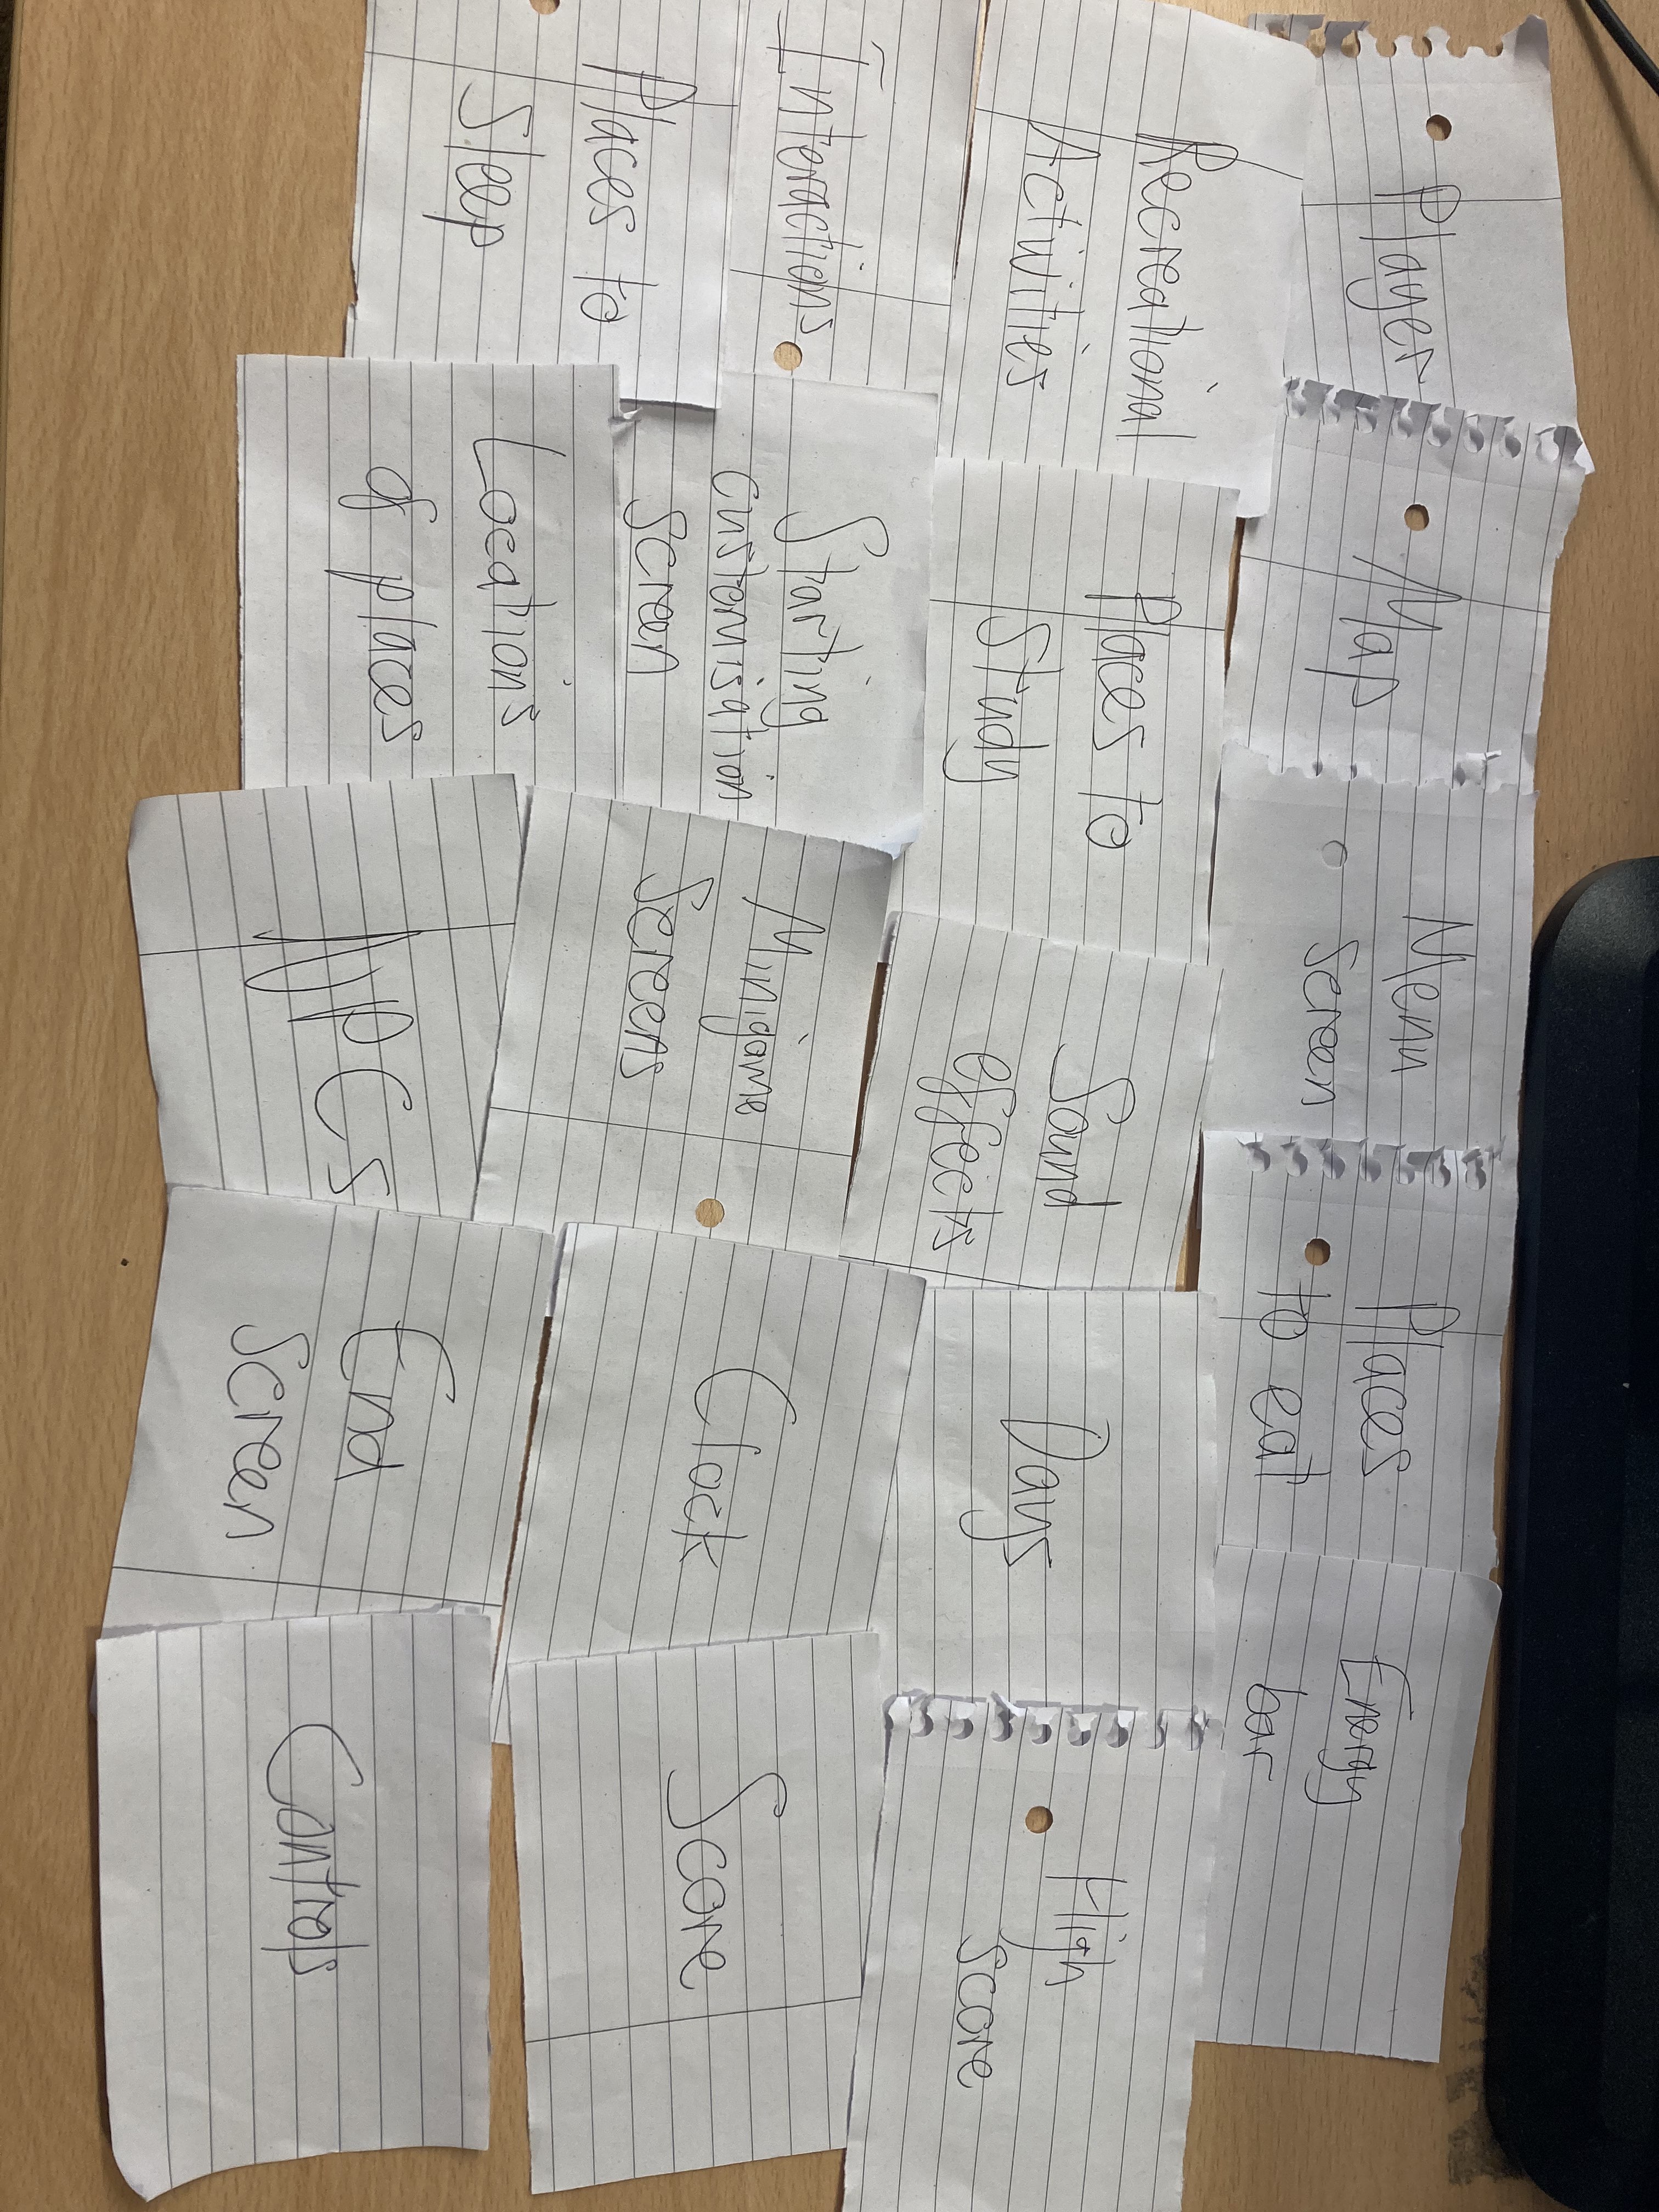 Player
Map
Menu
screen
Places
to eat
Energy
bar
Recreational
Activities
Places to
Study
Sound
effects
Days
High
score
Interactions
Starting
customisation
screen
Minigame
Screens
Clock
Score
Places to
Sleep
Locations
of places
NPCs
End
Screen
Controls